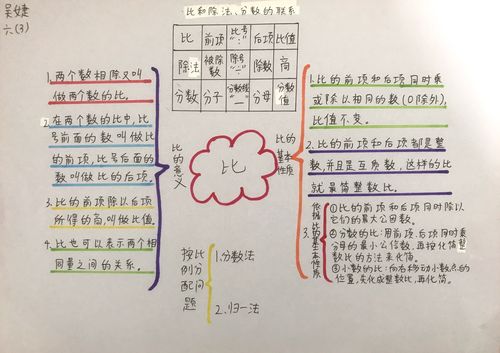 吴婕
六(3)
比和除法、分数的联系
比 前项 比号“:” 后项 比值
除法 被除数 除号“÷” 除数 商
分数 分子 分数线“—” 分母 分数值
1.两个数相除又叫
做两个数的比。
2.在两个数的比中,比
号前面的数叫做比
的前项,比号后面的
数叫做比的后项。
3.比的前项除以后项
所得的商,叫做比值。
4.比也可以表示两个相
同量之间的关系。
比的意义
比
比的基本性质
1.比的前项和后项同时乘
或除以相同的数(0除外),
比值不变。
2.比的前项和后项都是整
数,并且是互质数,这样的比
就最简整数比。
3.依据比的基本性质
①比的前项和后项同时除以
它们的最大公因数。
②分数的比:用前项、后项同时乘
分母的最小公倍数,再按化简整
数比的方法来化简。
③小数的比:向右移动小数点的
位置,先化成整数比,再化简。
按比例分配问题
1.分数法
2.归一法